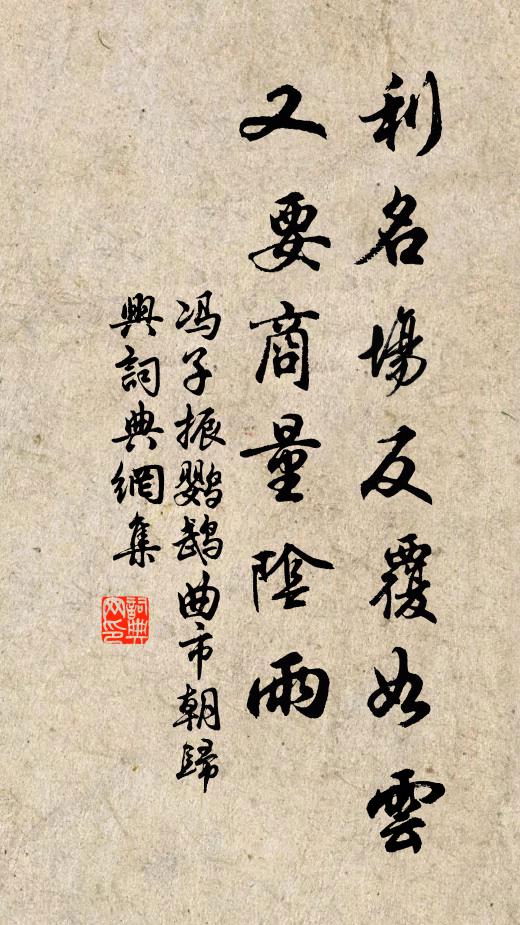 利名場反覆如雲
又要商量陰雨
冯子振鹦鹉曲市朝歸
興詞典網集
詞典
网印